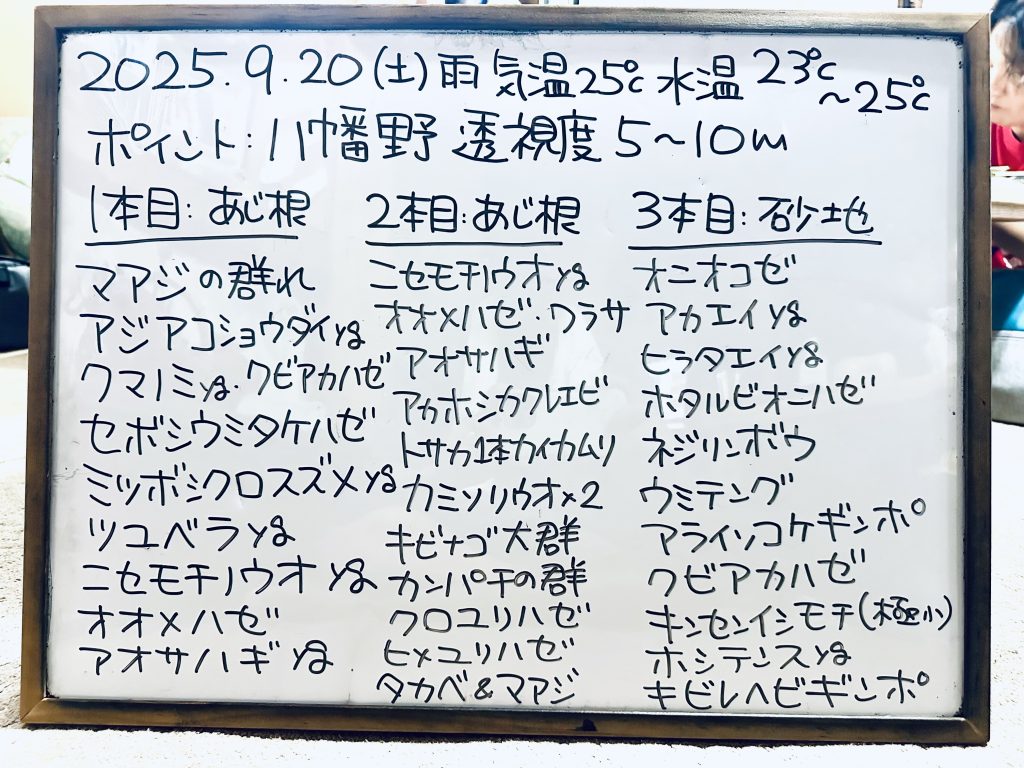 2025.9.20(土)雨 気温25℃ 水温 23℃~25℃
ポイント:八幡野 透視度 5~10m
1本目:あじ根
マアジの群れ
アジアコショウダイyg
クマノミyg・クビアカハゼ
セボシウミタケハゼ
ミツボシクロスズメyg
ツユベラyg
ニセモチノウオyg
オオメハゼ
アオサハギyg
2本目:あじ根
ニセモチノウオyg
オオメハゼ・ワラサ
アオサハギ
アカホシカクレエビ
トサカ1本カイカムリ
カミソリウオ×2
キビナゴ大群
カンパチの群
クロユリハゼ
ヒメユリハゼ
タカベ&マアジ
3本目:砂地
オニオコゼ
アカエイyg
ヒラタエイyg
ホタルビオニハゼ
ネジリンボウ
ウミテング
アライソコケギンポ
クビアカハゼ
キンセンイシモチ(極小)
ホシテンスyg
キビレヘビギンポ